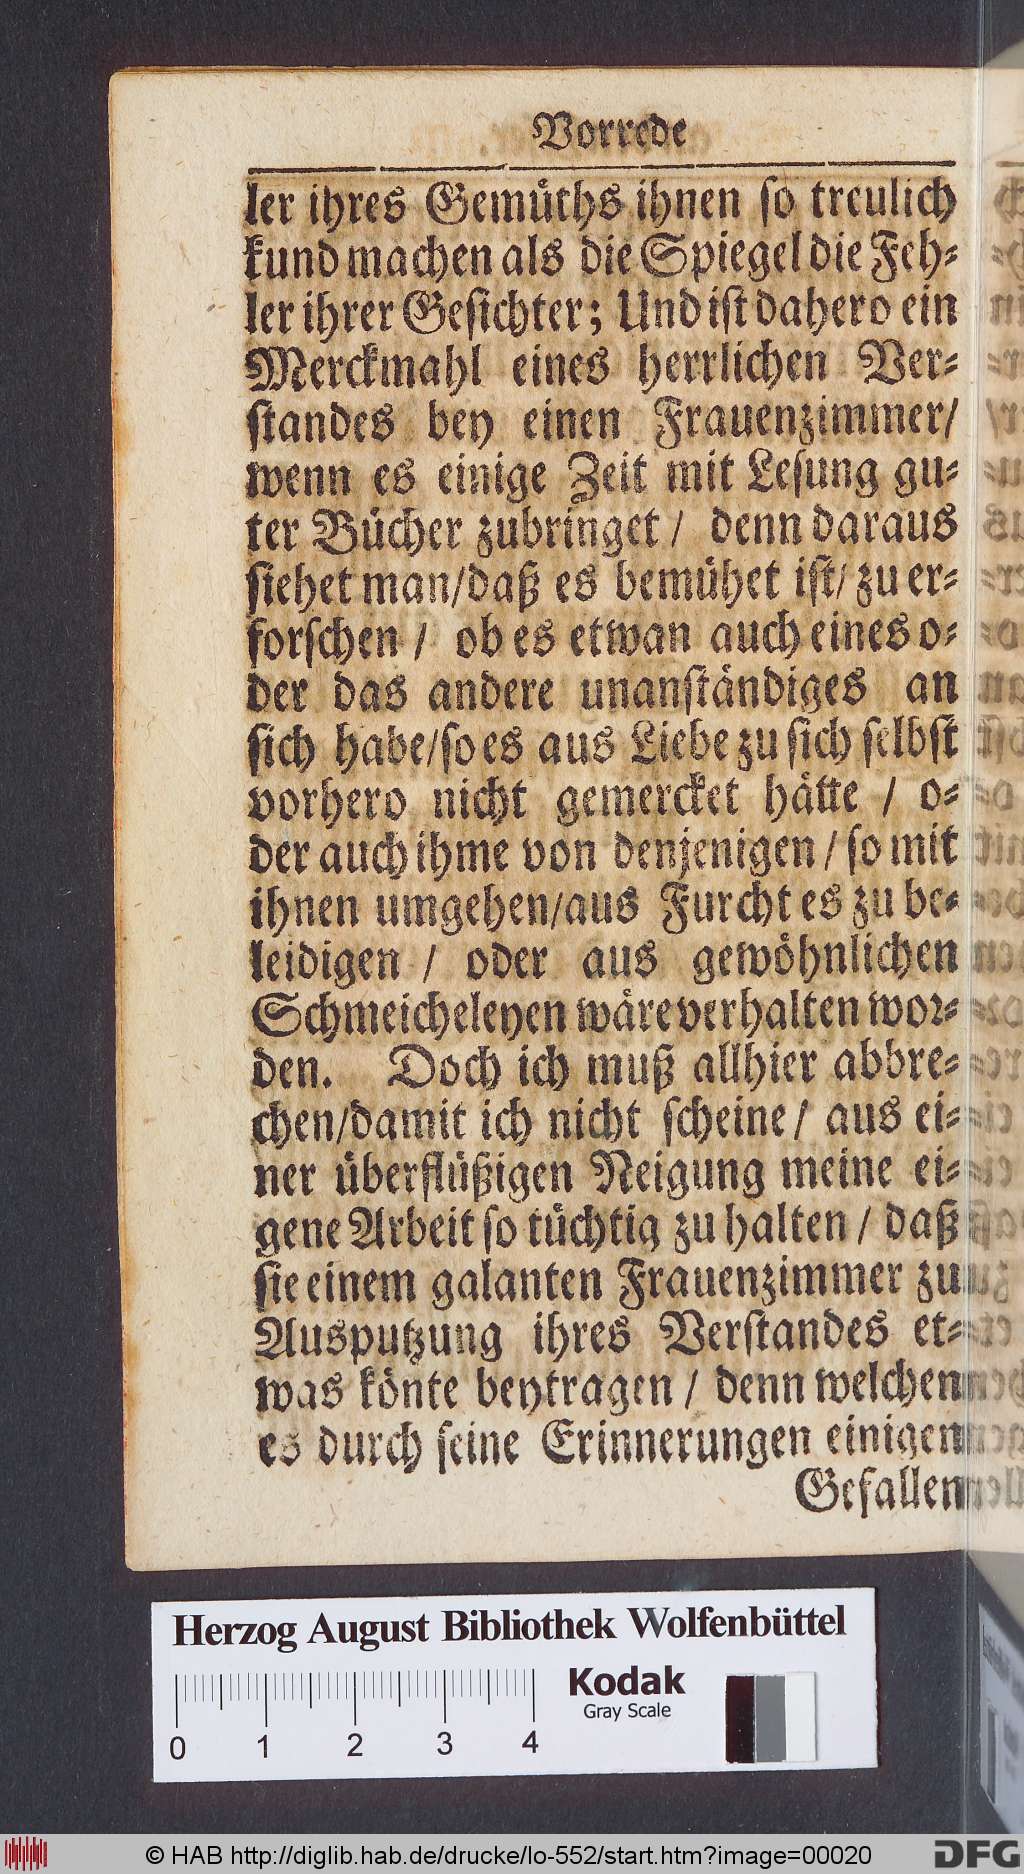 Vorrede
ler ihres Gemüths ihnen so treulich
kund machen als die Spiegel die Feh-
ler ihrer Gesichter; Und ist dahero ein
Merckmahl eines herrlichen Ver-
standes bey einen Frauenzimmer/
wenn es einige Zeit mit Lesung gu-
ter Bücher zubringet / denn daraus
siehet man/daß es bemühet ist/ zu er-
forschen / ob es etwan auch eines o-
der das andere unanständiges an
sich habe/so es aus Liebe zu sich selbst
vorhero nicht gemercket hätte / o-
der auch ihme von denjenigen / so mit
ihnen umgehen/aus Furcht es zu be-
leidigen / oder aus gewöhnlichen
Schmeicheleyen wäre verhalten wor-
den. Doch ich muß allhier abbre-
chen/damit ich nicht scheine / aus ei-
ner überflüßigen Neigung meine ei-
gene Arbeit so tüchtig zu halten / daß
sie einem galanten Frauenzimmer zu
Ausputzung ihres Verstandes et-
was könte beytragen / denn welchen
es durch seine Erinnerungen einigen
Gefallen
Herzog August Bibliothek Wolfenbüttel
Kodak
Gray Scale
0 1 2 3 4
© HAB http://diglib.hab.de/drucke/lo-552/start.htm?image=00020
DFG